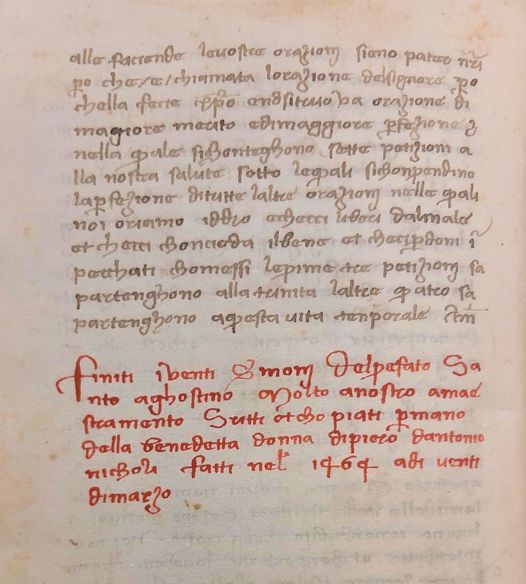 alle faciende levostre orazioni sieno pater nr̄i
ꝑo che/e/chiamata lorazione delsignore ꝑo
chella fecie xp̄o enōsitruova orazione di
magiore merito edimaggiore ꝑfezione
nella quale sichonteghono sette petizioni a
lla nostra salute sotto lequali sichonpendino
laꝑfezione ditutte laltre orazioni nelle quali
noi oriamo iddio echecci liberi dalmale
et checci chonceda ilbene et checiꝑdoni i
pecchati chomessi leprime tre petizioni sa
partenghono alla trinita laltre quatro sa
partenghono aquesta vita tenporale Am̄
Finiti i venti Sermoni delpefato Sa
nto aghostino Molto anostro amae
stramento Scritti et chopiati ꝑmano
della benedetta donna dipiero dantonio
nicholi fatti nel 1464 adi venti
dimarzo